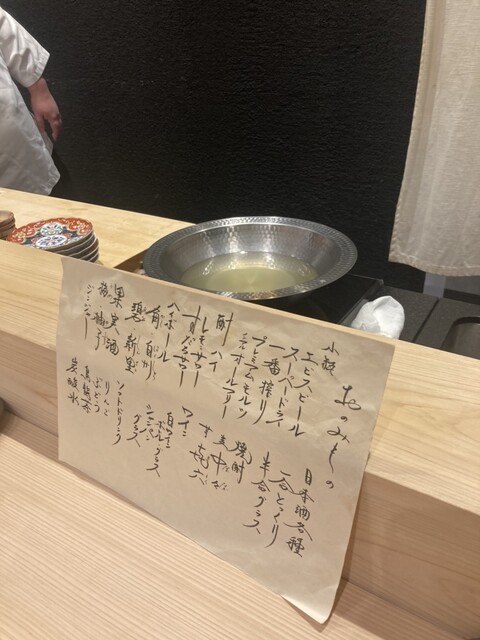 おのみもの
小瓶
エビスビール
スーパードライ
一番搾り
プレミアムモルツ
オールフリー
酎ハイ
レモンサワー
すだちサワー
ハイボール
角
白州
碧
果実酒
柚子
梅
ジンジャー
日本酒各種
一合とっくり
半合グラス
焼酎
麦 中々
芋 㐂六
ワイン
白ワイン
ボトル グラス
シャンパン
グラス
ソフトドリンク
りんご
ぶどう
烏龍茶
炭酸水